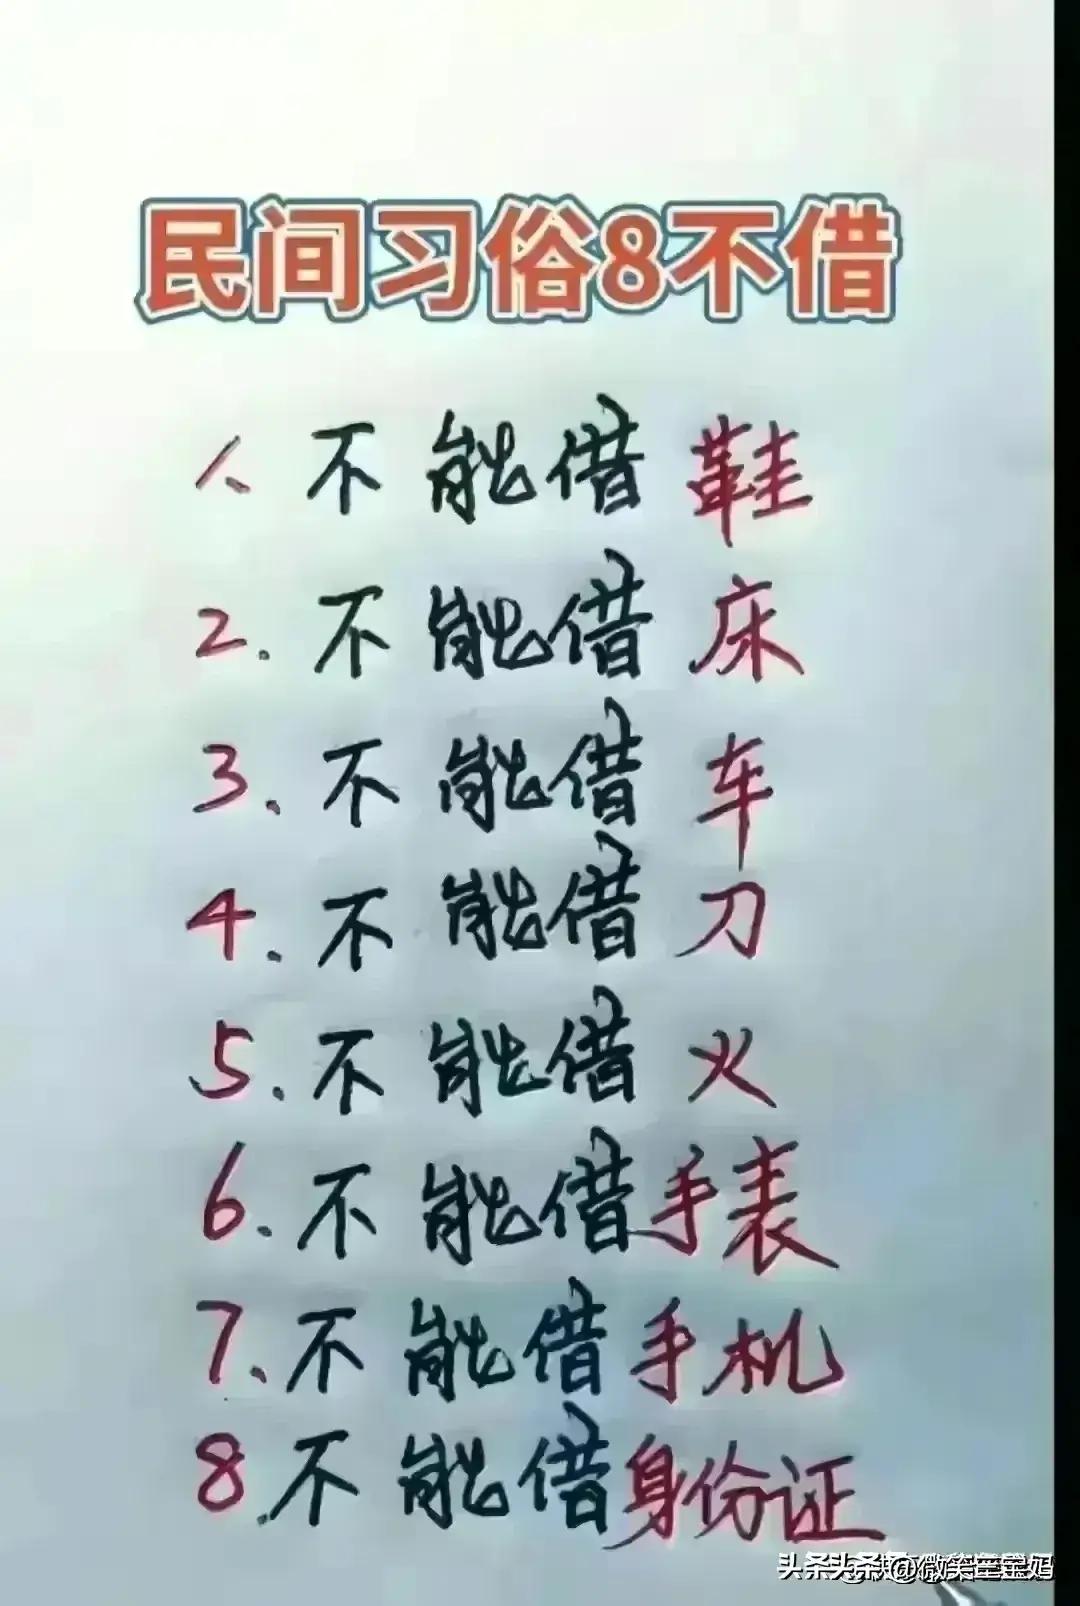 民间习俗8不借
1、不能借鞋
2.不能借床
3、不能借车
4.不能借刀
5.不能借火
6.不能借手表
7、不能借手机
8.不能借身份证
头条 @微笑